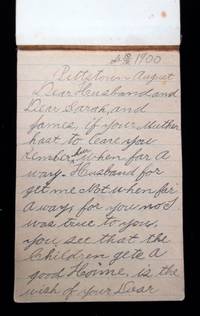 1900
Pittstown August
Dear Husband and
Dear Sarah, and
James, if your Muther
hast to leave you
rimber her when far A
way. Husband for
get me Not when far
A way, for you no I
was true to you.
you see that the
Children gets A
good Hoime, is the
wish of your Dear